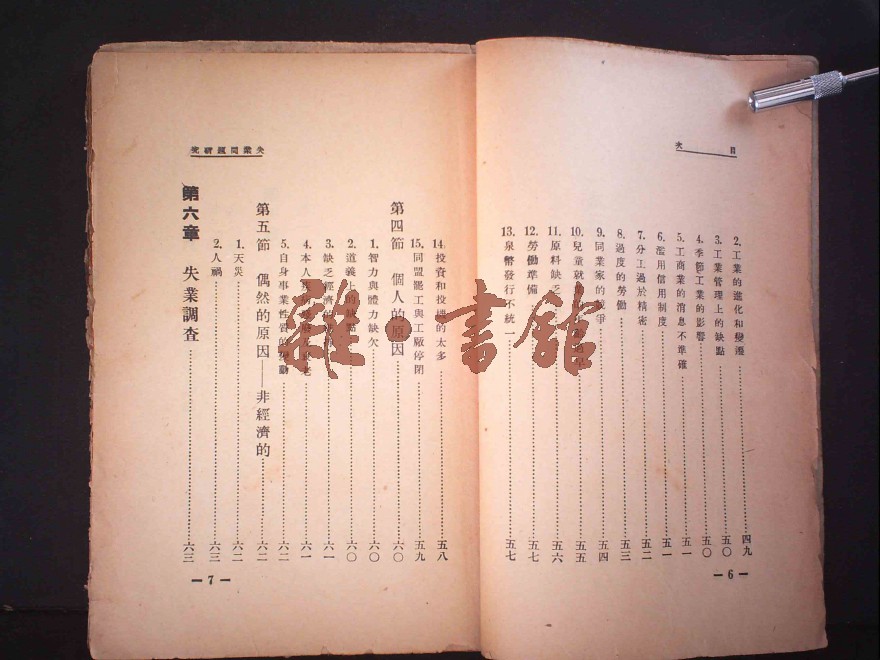 目次
2. 工業的進化和變遷……四九
3. 工業管理上的缺點……五〇
4. 季節工業的影響……五〇
5. 工商業的消息不準確……五一
6. 濫用信用制度……五一
7. 分工過於精密……五二
8. 過度的勞働……五三
9. 同業家的競爭……五四
10. 兒童就……五五
11. 原料缺乏……五六
12. 勞働準備……五七
13. 泉幣發行不統一……五七
— 6 —
失業問題研究
14. 投資和投機的太多……五八
15. 同盟罷工與工廠停閉……五九
第四節 個人的原因……六〇
1. 智力與體力缺欠……六〇
2. 道義上的缺點……六〇
3. 缺乏經濟的……六一
4. 本人……老……六一
5. 自身事業性質的變動……六二
第五節 偶然的原因——非經濟的……六二
1. 天災……六二
2. 人禍……六三
第六章 失業調査……六三
— 7 —
雜·書館